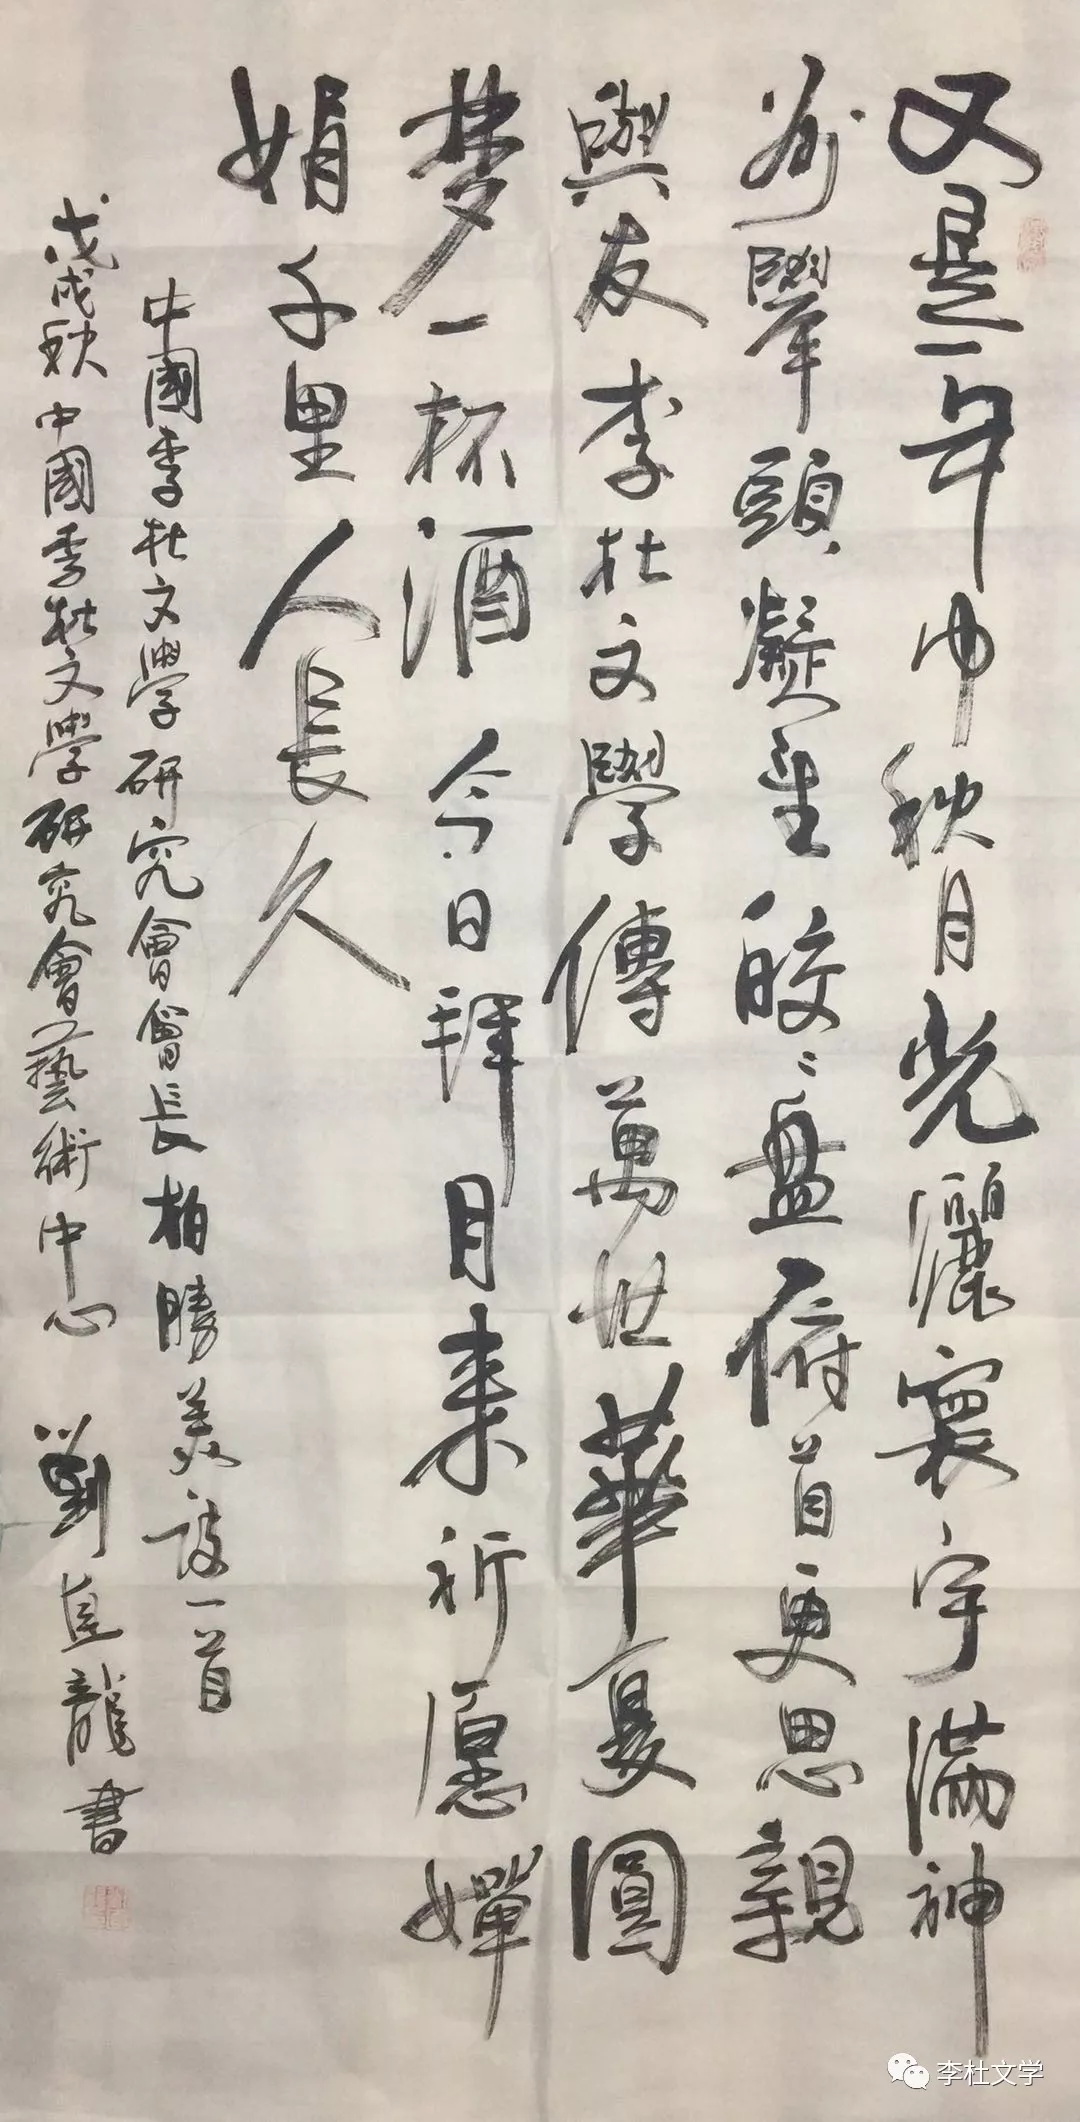 又是一年中秋月光灑寰宇滿神
州舉頭凝望皎〻盤俯首更思親
與友李杜文學傳萬世華夏圓
梦一杯酒今日拜月来祈愿嬋
娟千里人長久
中國李杜文學研究會會長柏勝美詩一首
戊戌秋中國李杜文學研究會藝術中心劉直龍書
李杜文学